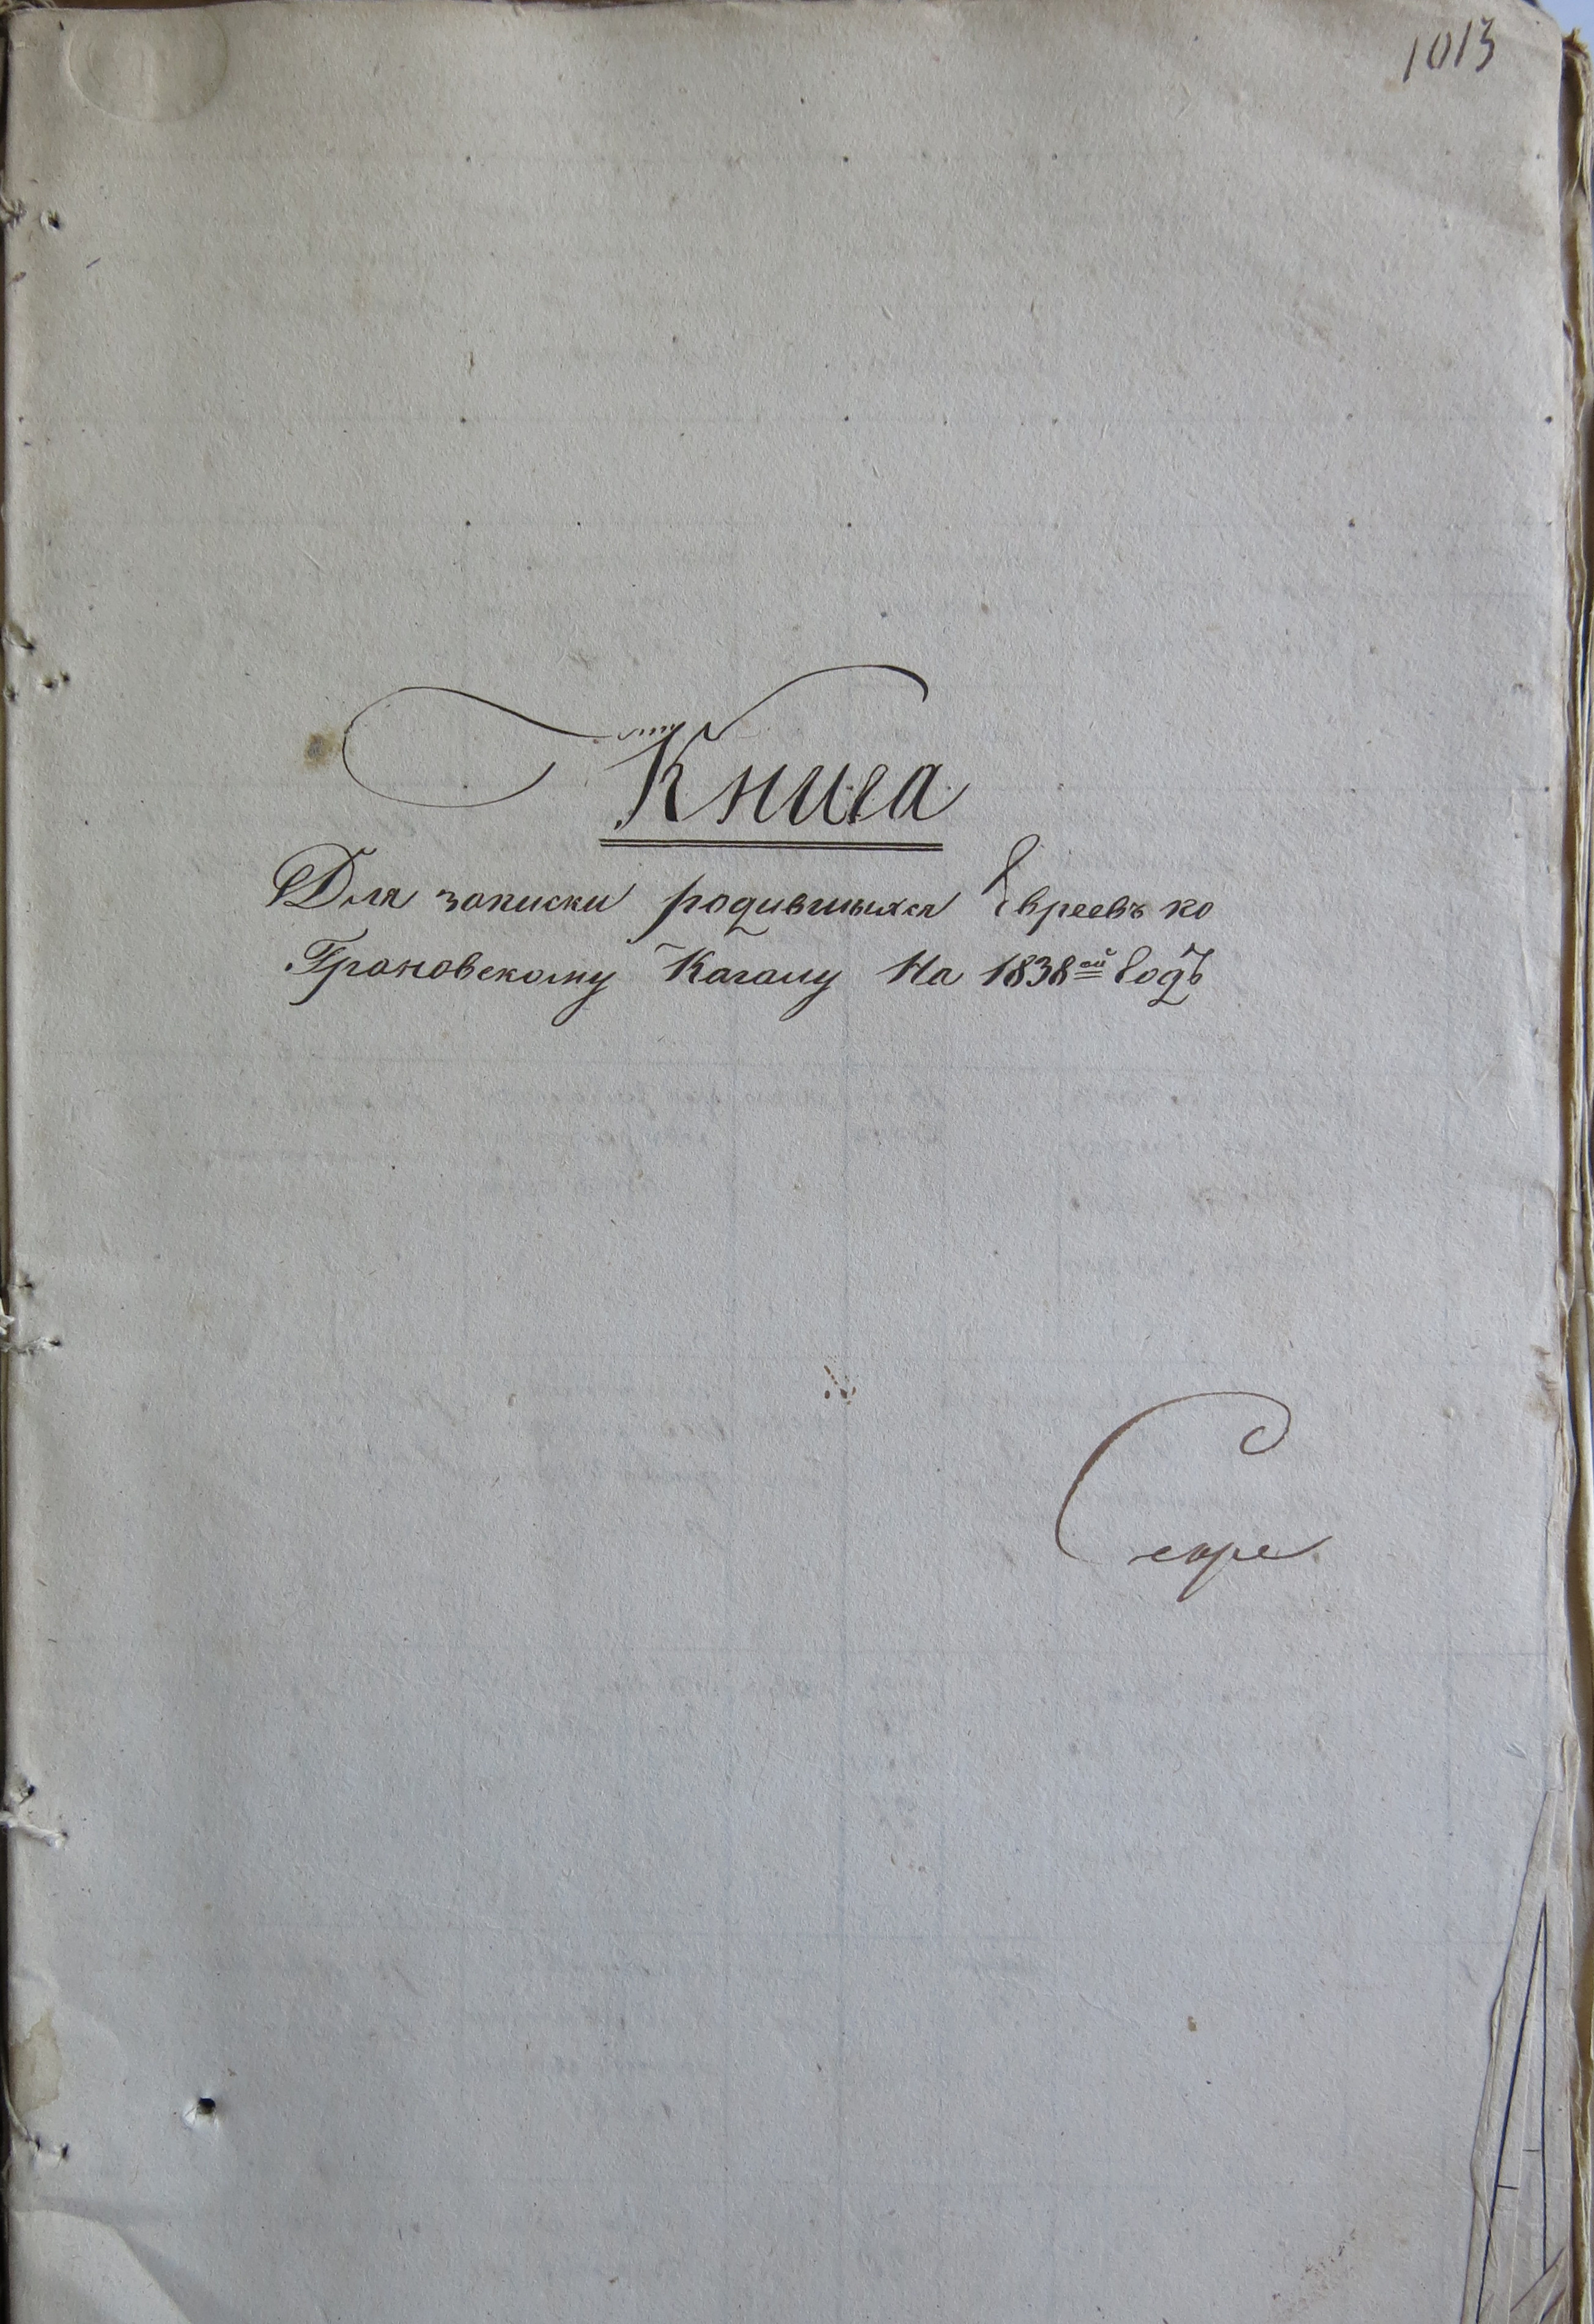 1013
Книга
Для записки родившихся Евреевъ ко
Грановскому Кагалу На 1838ой Годъ